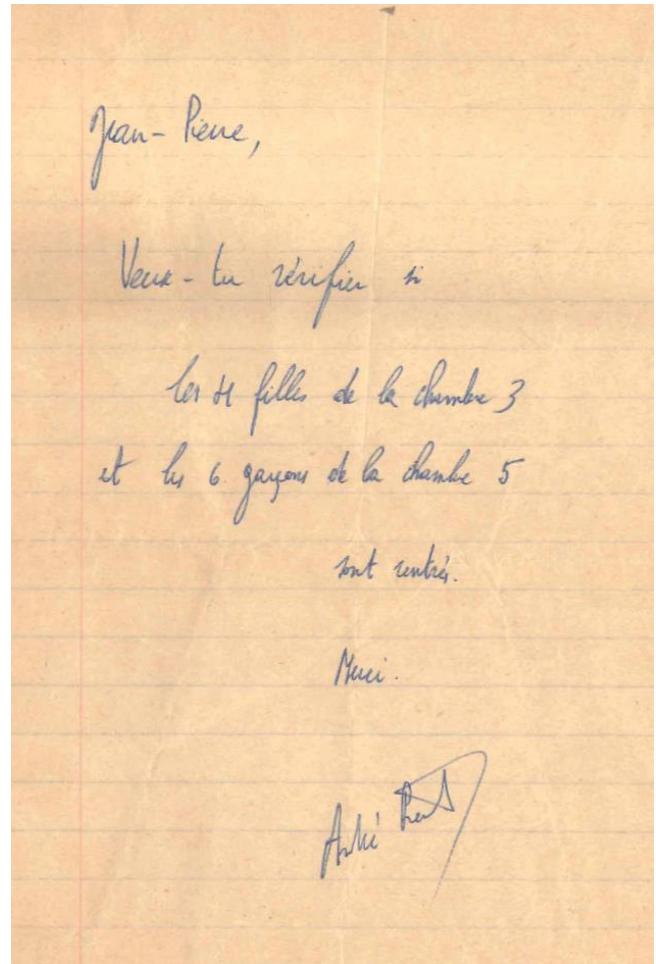 Jean-Pierre,
Veux-tu vérifier si
les 4 filles de la chambre 3
et les 6 garçons de la chambre 5
sont rentrés.
Merci.
André